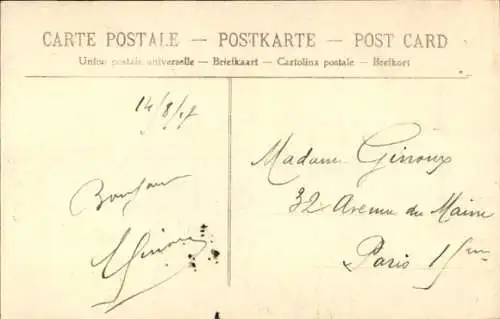 CARTE POSTALE — POSTKARTE — POST CARD
Union postale universelle — Briefkaart — Cartolina postale — Brefkort
14/8/
Bonjour
Madame Giroux
32 Avenue du Maine
Paris